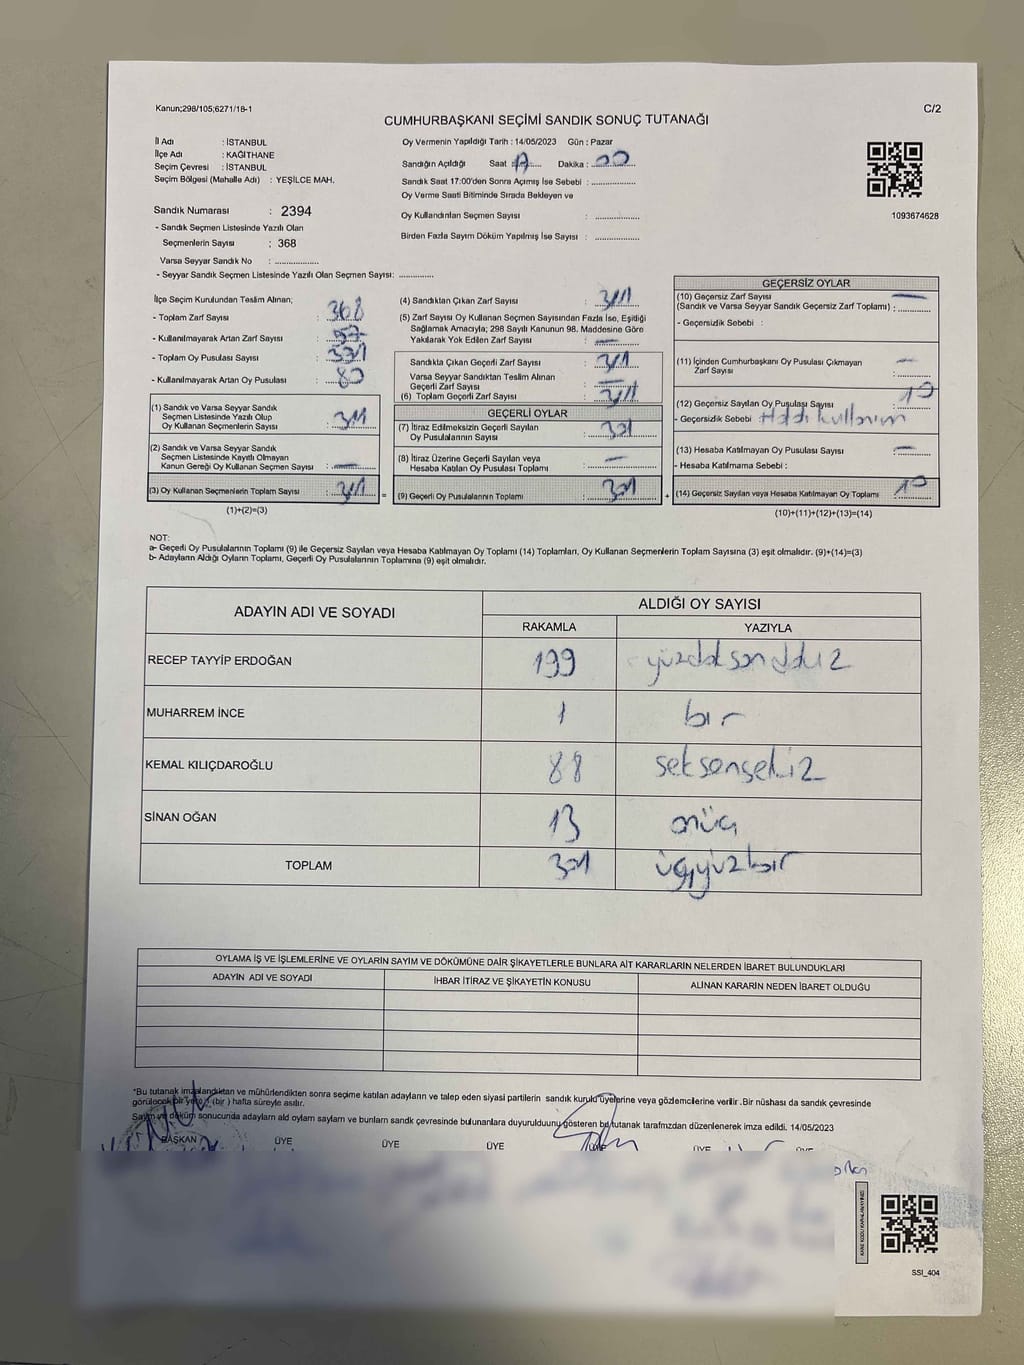 Kanun;298/105;6271/18-1
C/2
CUMHURBAŞKANI SEÇİMİ SANDIK SONUÇ TUTANAĞI
İl Adı : İSTANBUL
İlçe Adı : KAĞITHANE
Seçim Çevresi : İSTANBUL
Seçim Bölgesi (Mahalle Adı) : YEŞİLCE MAH.
Sandık Numarası : 2394
- Sandık Seçmen Listesinde Yazılı Olan
Seçmenlerin Sayısı : 368
Varsa Seyyar Sandık No : ..............
- Seyyar Sandık Seçmen Listesinde Yazılı Olan Seçmen Sayısı: ..............
Oy Vermenin Yapıldığı Tarih : 14/05/2023 Gün : Pazar
Sandığın Açıldığı Saat : Dakika : 00
Sandık Saat 17:00'den Sonra Açımış İse Sebebi : ..............
Oy Verme Saati Bitiminde Sırada Bekleyen ve
Oy Kullandırılan Seçmen Sayısı : ..............
Birden Fazla Sayım Döküm Yapılmış İse Sayısı : ..............
1093674628
İlçe Seçim Kurulundan Teslim Alınan;
- Toplam Zarf Sayısı : 368
- Kullanılmayarak Artan Zarf Sayısı : 57
- Toplam Oy Pusulası Sayısı : 391
- Kullanılmayarak Artan Oy Pusulası : 80
(1) Sandık ve Varsa Seyyar Sandık
Seçmen Listesinde Yazılı Olup
Oy Kullanan Seçmenlerin Sayısı : 311
(2) Sandık ve Varsa Seyyar Sandık
Seçmen Listesinde Kayıtlı Olmayan
Kanun Gereği Oy Kullanan Seçmen Sayısı : —
(3) Oy Kullanan Seçmenlerin Toplam Sayısı : 311
(1)+(2)=(3)
(4) Sandıktan Çıkan Zarf Sayısı : 311
(5) Zarf Sayısı Oy Kullanan Seçmen Sayısından Fazla İse, Eşitliği
Sağlamak Amacıyla; 298 Sayılı Kanunun 98. Maddesine Göre
Yakılarak Yok Edilen Zarf Sayısı : —
Sandıkta Çıkan Geçerli Zarf Sayısı : 311
Varsa Seyyar Sandıktan Teslim Alınan
Geçerli Zarf Sayısı : —
(6) Toplam Geçerli Zarf Sayısı : 311
GEÇERLİ OYLAR
(7) İtiraz Edilmeksizin Geçerli Sayılan
Oy Pusulalarının Sayısı : 301
(8) İtiraz Üzerine Geçerli Sayılan veya
Hesaba Katılan Oy Pusulası Toplamı : —
= (9) Geçerli Oy Pusulalarının Toplamı : 301 +
GEÇERSİZ OYLAR
(10) Geçersiz Zarf Sayısı —
(Sandık ve Varsa Seyyar Sandık Geçersiz Zarf Toplamı) : ..............
- Geçersizlik Sebebi :
(11) İçinden Cumhurbaşkanı Oy Pusulası Çıkmayan —
Zarf Sayısı : ..............
(12) Geçersiz Sayılan Oy Pusulası Sayısı : 10
- Geçersizlik Sebebi : Hatalı kullanım
(13) Hesaba Katılmayan Oy Pusulası Sayısı : —
- Hesaba Katılmama Sebebi :
(14) Geçersiz Sayılan veya Hesaba Katılmayan Oy Toplamı : 10
(10)+(11)+(12)+(13)=(14)
NOT:
a- Geçerli Oy Pusulalarının Toplamı (9) ile Geçersiz Sayılan veya Hesaba Katılmayan Oy Toplamı (14) Toplamları, Oy Kullanan Seçmenlerin Toplam Sayısına (3) eşit olmalıdır. (9)+(14)=(3)
b- Adayların Aldığı Oyların Toplamı, Geçerli Oy Pusulalarının Toplamına (9) eşit olmalıdır.
ADAYIN ADI VE SOYADI
ALDIĞI OY SAYISI
RAKAMLA YAZIYLA
RECEP TAYYİP ERDOĞAN 199 yüzdoksandokuz
MUHARREM İNCE 1 bir
KEMAL KILIÇDAROĞLU 88 seksensekiz
SİNAN OĞAN 13 onüç
TOPLAM 301 üçyüzbir
OYLAMA İŞ VE İŞLEMLERİNE VE OYLARIN SAYIM VE DÖKÜMÜNE DAİR ŞİKAYETLERLE BUNLARA AİT KARARLARIN NELERDEN İBARET BULUNDUKLARI
ADAYIN ADI VE SOYADI İHBAR İTİRAZ VE ŞİKAYETİN KONUSU ALINAN KARARIN NEDEN İBARET OLDUĞU
*Bu tutanak imzalandıktan ve mühürlendikten sonra seçime katılan adayların ve talep eden siyasi partilerin sandık kurulu üyelerine veya gözlemcilerine verilir.Bir nüshası da sandık çevresinde
görülecek bir yere 1 (bir ) hafta süreyle asılır.
Sayım ve döküm sonucunda adayların ald oyların saylarn ve bunlarn sandk çevresinde bulunanlara duyurulduunu gösteren bu tutanak tarafımzdan düzenlenerek imza edildi. 14/05/2023
BAŞKAN ÜYE ÜYE ÜYE ÜYE ÜYE ÜYE
SSI_404